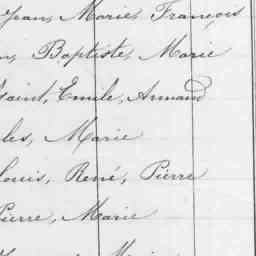 Jean, Marie, François
Baptiste, Marie
Emile, Armand
Marie
Louis, René, Pierre
Pierre, Marie